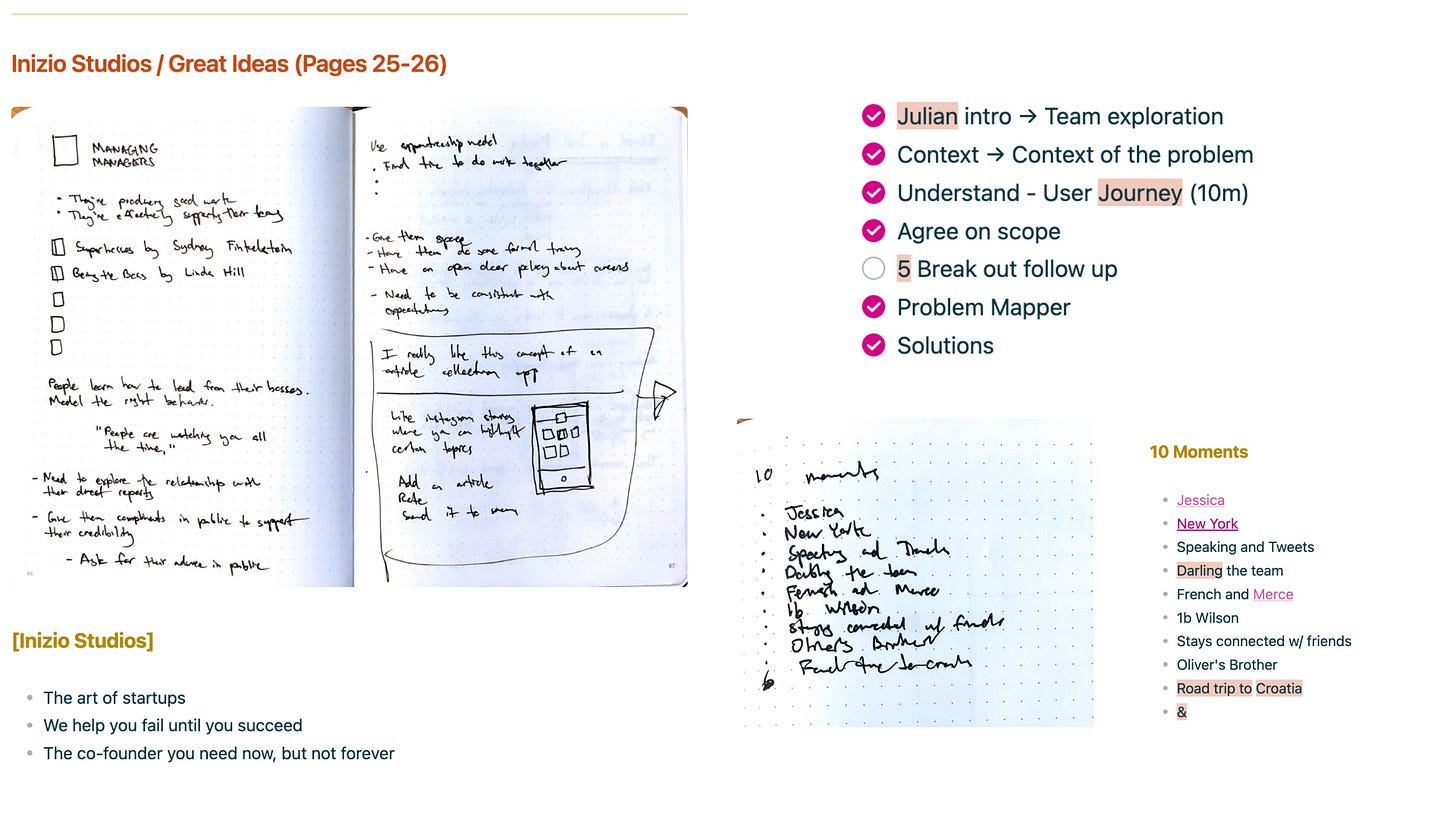 Inizio Studios / Great Ideas (Pages 25-26)
MANAGING
MANAGERS
• They're producing good work
• They're effectively supporting their teams
Superbosses by Sydney Finkelstein
Being the Boss by Linda Hill
People learn how to lead from their bosses.
Model the right behavior.
"People are watching you all
the time."
- Need to explore the relationship with
their direct reports
- Give them compliments in public to support
their credibility
- Ask for their advice in public
Use apprenticeship model
• Find time to do work together
- Give them space
- Have them do some formal training
- Have an open door policy about careers
- Need to be consistent with
expectations
I really like this concept of an
article collection app
Like instagram stories
where you can highlight
certain topics
Add an article
Rate
Send it to
87
[Inizio Studios]
• The art of startups
• We help you fail until you succeed
• The co-founder you need now, but not forever
Julian intro → Team exploration
Context → Context of the problem
Understand - User Journey (10m)
Agree on scope
5 Break out follow up
Problem Mapper
Solutions
10 moments
• Jessica
• New York
• Speaking and
• the team
• and Merce
• 1b Wilson
• Stays connected w/ friends
• Brother
10 Moments
• Jessica
• New York
• Speaking and Tweets
• Darling the team
• French and Merce
• 1b Wilson
• Stays connected w/ friends
• Oliver's Brother
• Road trip to Croatia
• &